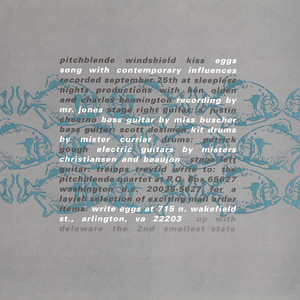 pitchblende windshield kiss eggs
song with contemporary influences
recorded september 25th at sleepless
nights productions with ken olden
and charles bennington recording by
mr. jones stage right guitar: justin
chearno bass guitar by miss buscher
bass guitar: scott desimon kit drums
by mister currier drums: patrick
gough electric guitars by misters
christiansen and beaujon stage left
guitar: treiops treyfid write to: the
pitchblende quartet at P.O. Box 65627
washington d.c. 20035-5627 for a
lavish selection of exciting mail order
items. write eggs at 715 n. wakefield
st., arlington, va 22203 up with
delaware the 2nd smallest state